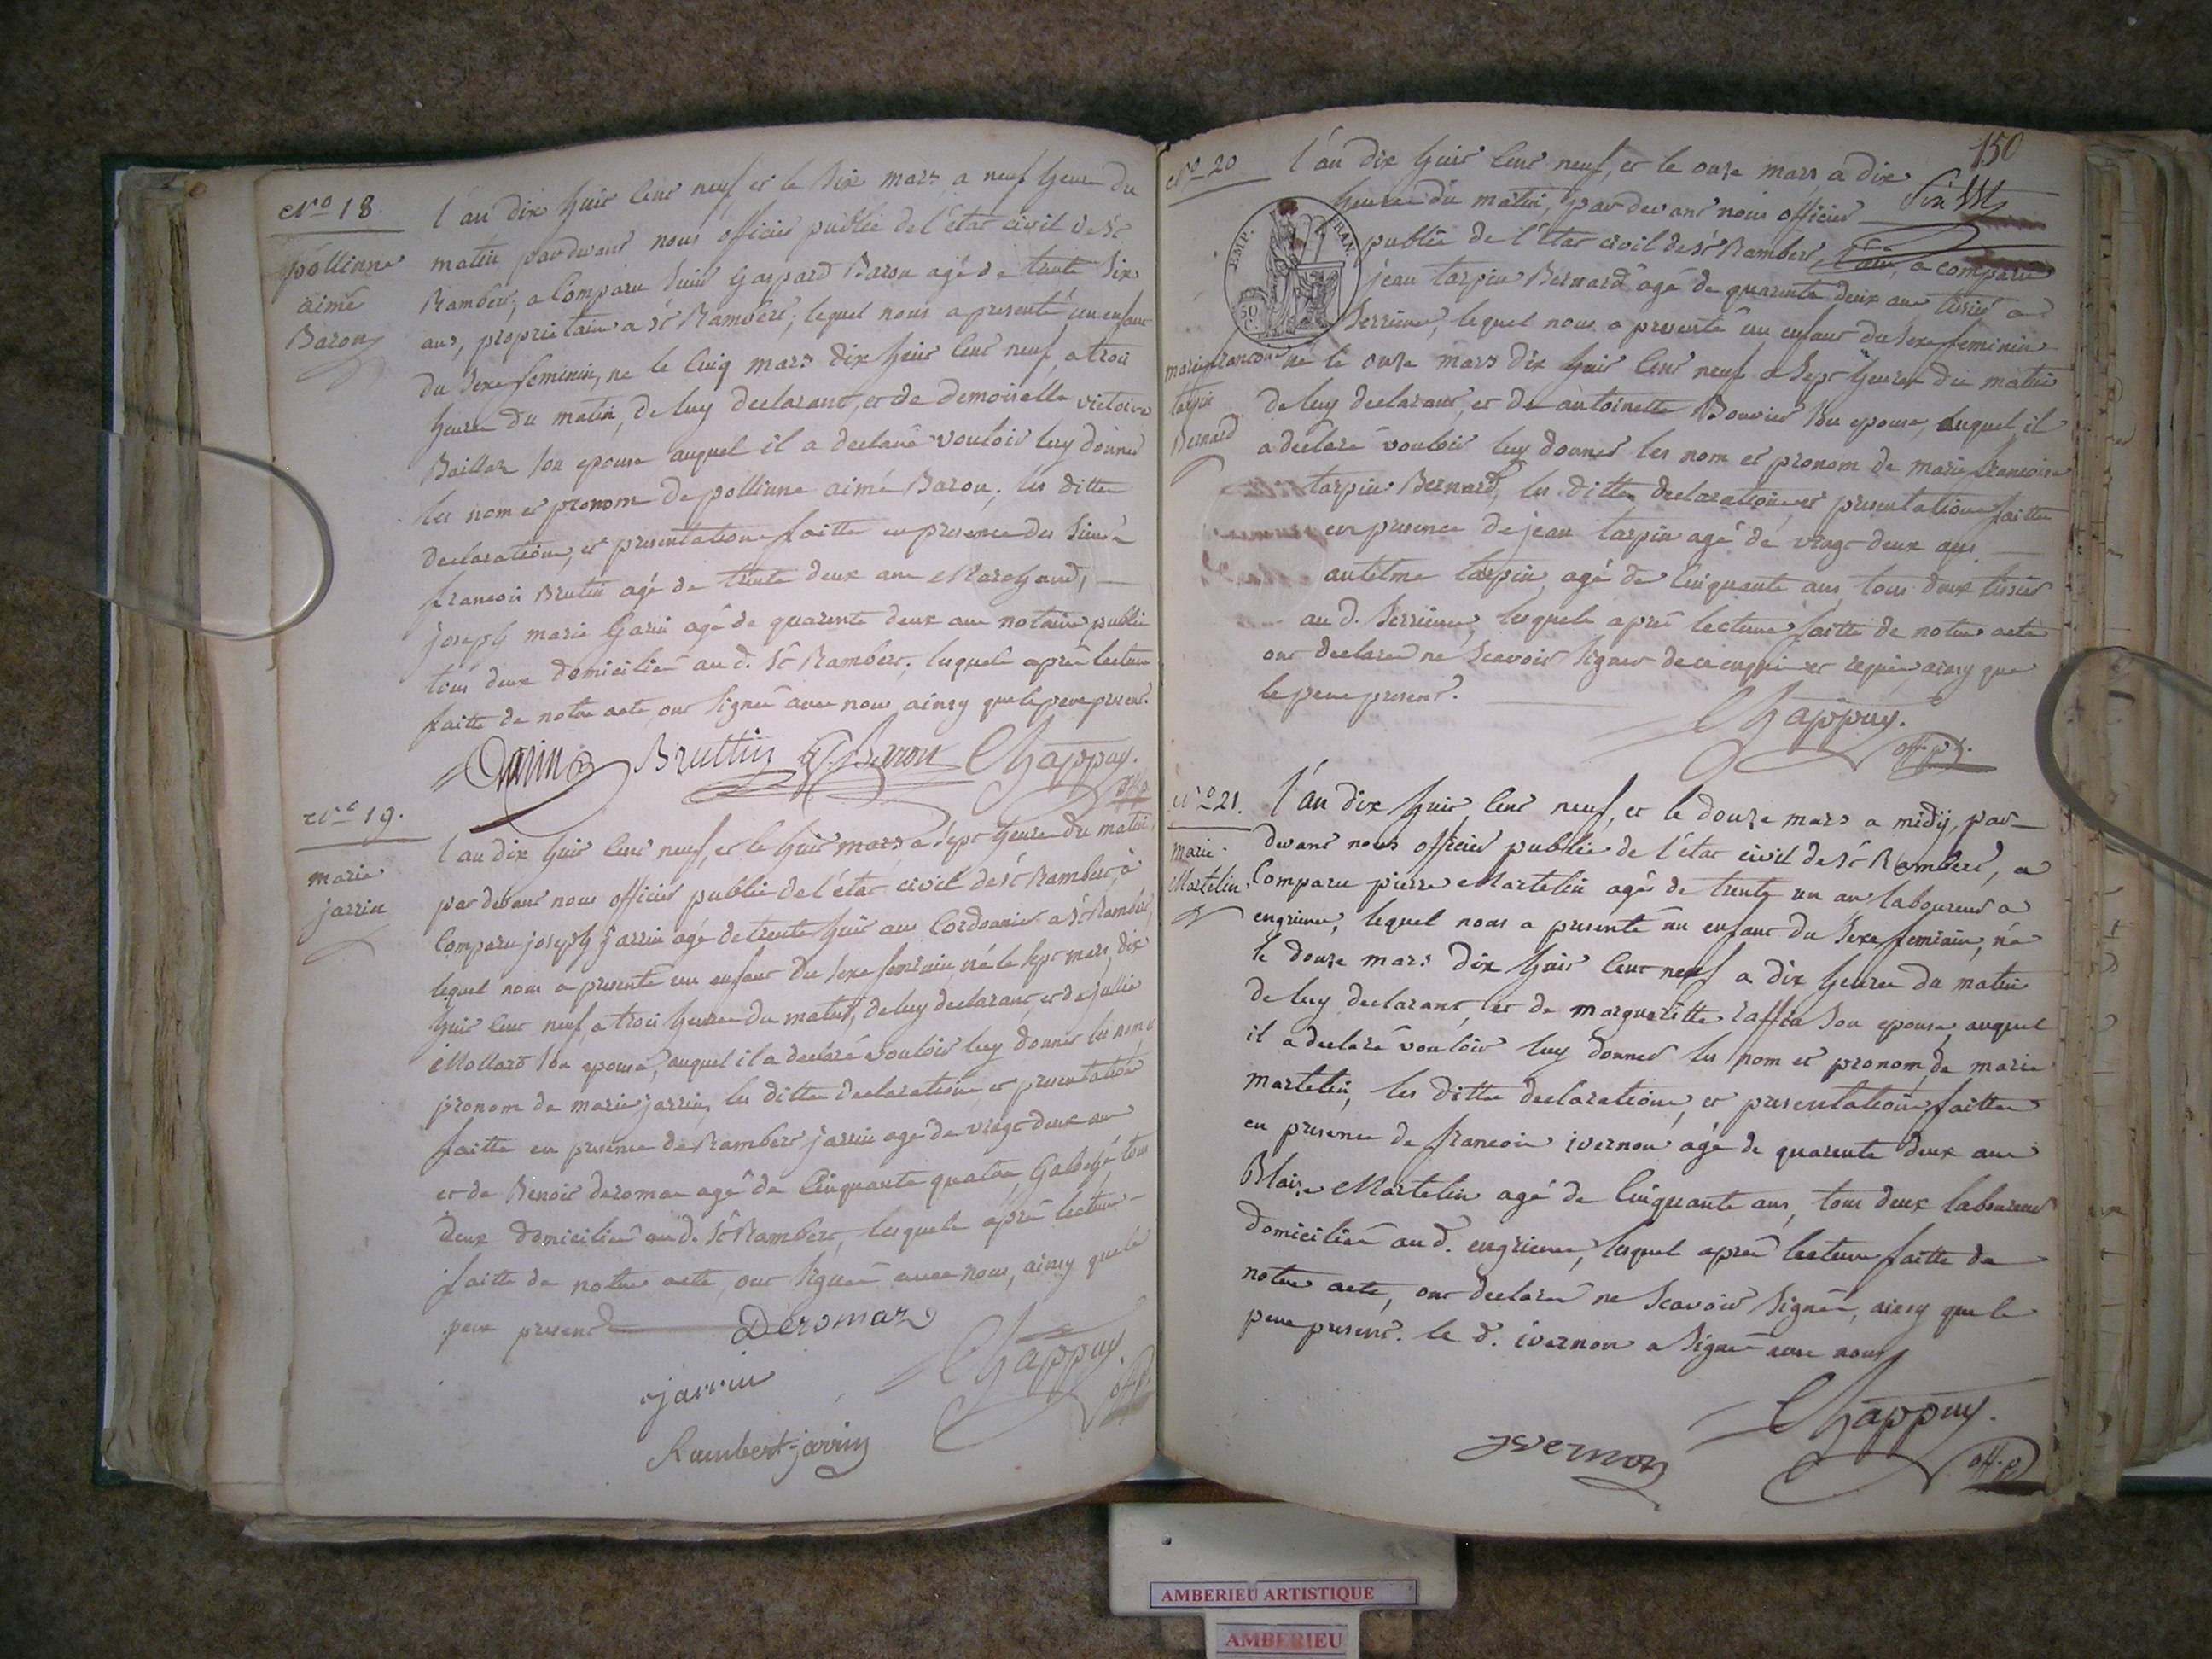 N.o 18.
pollinne
aimé
Baron
l'an dix huit cent neuf et le six mars a neuf heure du
matin pardevant nous officier public de l'état civil de St
Rambert, a Comparu Sieur Gaspard Baron agé de trente six
ans, proprietaire a St Rambert, lequel nous a presenté un enfant
du Sexe feminin, né le Cinq mars dix huit cent neuf, a trois
heure du matin, de luy declarant, et de demoiselle victoire
Baillar son epouse auquel il a declaré vouloir luy donner
les nom et pronom de pollinne aimé Baron, les dittes
declaration, et presentation faitte en presence des Sieurs
francois Brutin agé de trente deux ans Marchand,
joseph marie Garin agé de quarente deux ans notaire public
tous deux domicilies au d. St Rambert, lesquels après lecture
faitte de notre acte ont Signé avec nous ainsy que le pere present.
Garin Bruttin G. Baron Chappuy.
off. p
N.o 19.
marie
jarrin
l'an dix huit cent neuf, et le huit mars a Sept heure du matin,
par devant nous officier public de l'état civil de St Rambert, a
Comparu joseph jarrin agé de trente huit ans Cordonnier a St Rambert,
lequel nous a presenté un enfant du Sexe feminin né le Sept mars, dix
huit cent neuf, a trois heures du matin, de luy declarant, et de jullie
Mollard son epouse, auquel il a declaré vouloir luy donner les nom et
pronom de marie jarrin, les dittes declaration et presentation
faitte en presence de Rambert jarrin agé de vingt deux ans
et de Benoit deromas agé de Cinquante quatre, Galoché tous
deux domicilies au d. St Rambert, lesquels après lecture
faitte de notre acte, ont Signés avec nous, ainsy que le
pere present
Deromaz
jarrin
Chappuy.
off. p.
Rambert jarrin
150
N.o 20
l'an dix huit cent neuf, et le onze mars a dix
heures du matin, par devant nous officier
public de l'état civil de St Rambert, a comparu
EMP. FRAN.
50
C.
jean tarpin Bernard agé de quarente deux ans tissier a
Serrieres, lequel nous a presenté un enfant du Sexe feminin
marie francoise
tarpin
Bernard
né le onze mars dix huit cent neuf a Sept heures du matin
de luy declarant, et de antoinette Bouvier son epouse, auquel il
a declaré vouloir luy donner les nom et pronom de marie francoise
tarpin Bernard, les dittes declaration et presentation faitte
en presence de jean tarpin agé de vingt deux ans
antelme tarpin, agé de Cinquante ans, tous deux tissier
au d. Serrieres, lesquels après lecture faitte de notre acte
ont declaré ne Scavoir Signer de ce enquis et requis, ainsy que
le pere present.
Chappuy.
off. p.
N.o 21.
marie
Martelin
l'an dix huit cent neuf, et le douze mars a midÿ, par
devant nous officier public de l'état civil de St Rambert, a
Comparu pierre Martelin agé de trente un an laboureur a
engrieres, lequel nous a presenté un enfant du Sexe feminin, né
le douze mars dix huit cent neuf a dix heures du matin
de luy declarant, et de margueritte raffin son epouse, auquel
il a declaré vouloir luy donner les nom et pronom de marie
martelin, les dittes declaration, et presentation faittes
en presence de francois ivernon agé de quarente deux ans
Blaise Martelin agé de Cinquante ans, tous deux laboureur
domicilies au d. engrieres, lesquel après lecture faitte de
notre acte, ont declaré ne Scavoir Signer, ainsy que le
pere present. le d. ivernon a Signé avec nous
Chappuy.
off. p
yvernon
AMBERIEU ARTISTIQUE
AMBERIEU